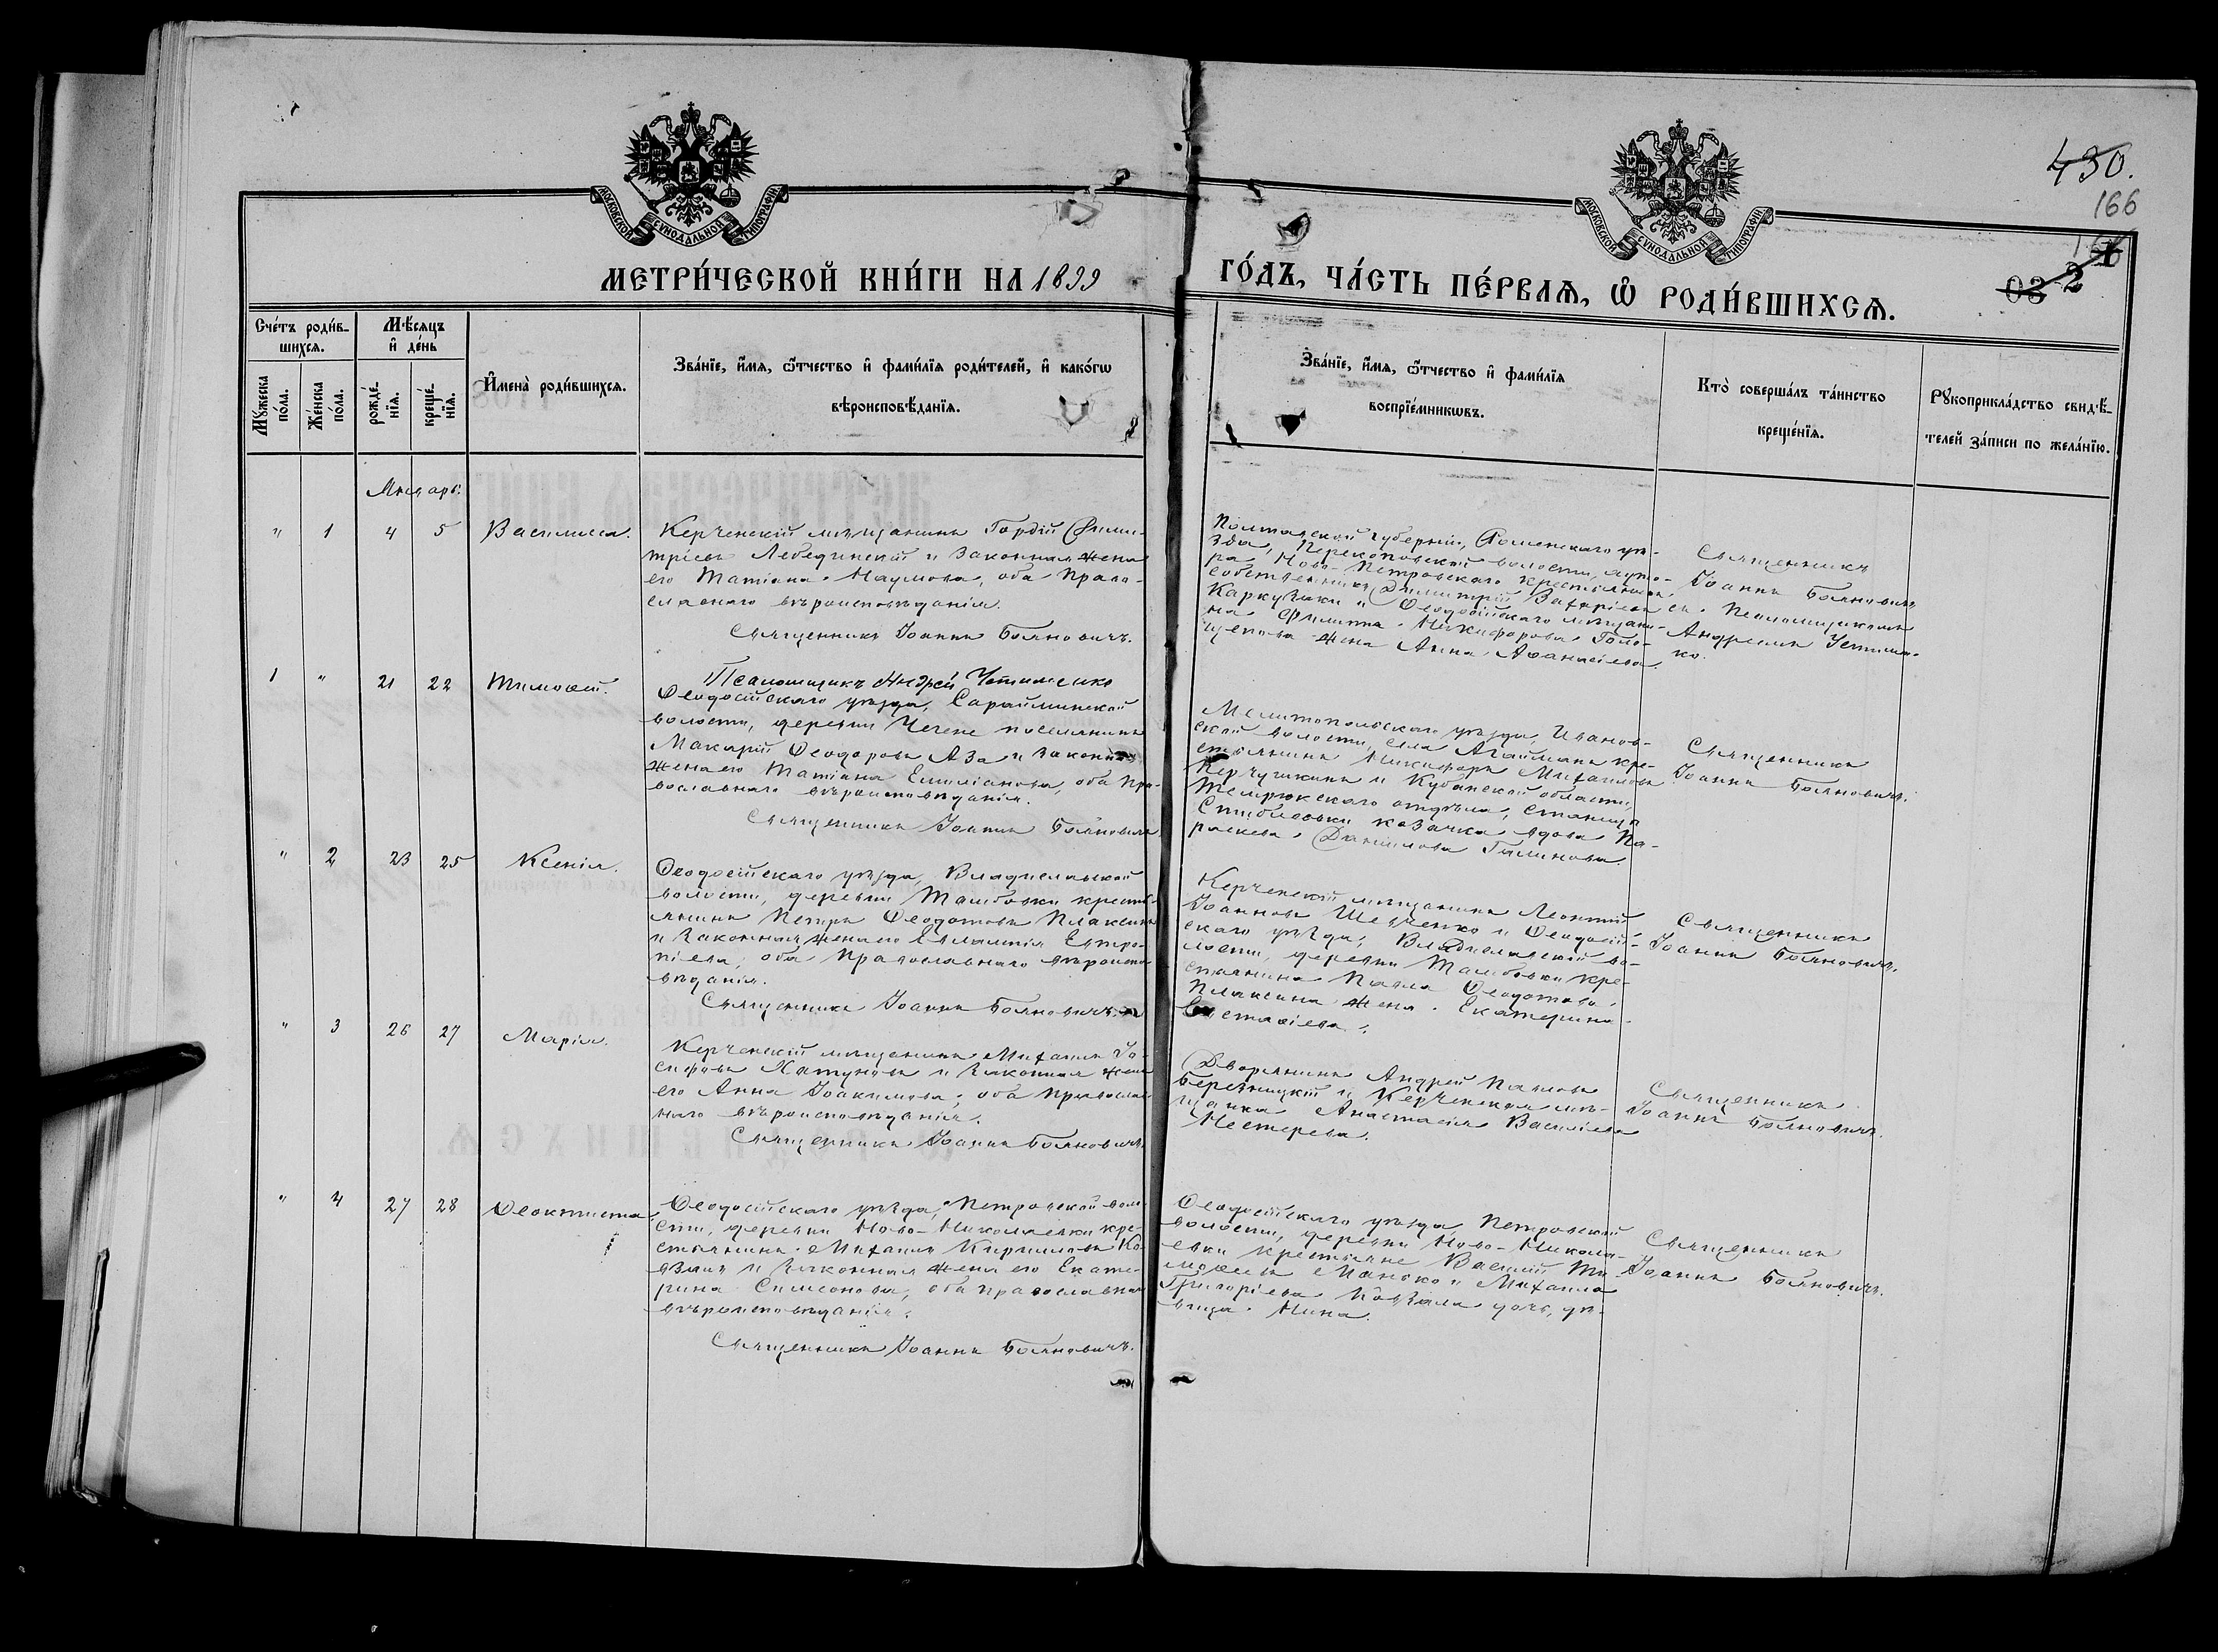 430.
166
МОСКОВСКОЙ СѴНОДАЛЬНОЙ ТИПОГРАФІИ
МОСКОВСКОЙ СѴНОДАЛЬНОЙ ТИПОГРАФІИ
МЕТРИ́ЧЕСКОЙ КНИ́ГИ НА 1899
ГО́ДЪ, ЧА́СТЬ ПЕ́РВАѦ, Ѡ҆ РОДИ́ВШИХСѦ.
03 2
Сче́тъ роди́в-
шихсѧ.
Мѣ́сяцъ
и҆ де́нь
Мꙋ́жеска
по́ла.
Же́нска
по́ла.
рожде́-
нїѧ.
креще́-
нїѧ.
И҆мена̀ роди́вшихсѧ.
Зва́нїе, и҆́мѧ, ѻ҆́тчество и҆ фами́лїѧ роди́телей, и҆ како́гѡ
вѣроисповѣ́данїѧ.
Зва́нїе, и҆́мѧ, ѻ҆́тчество и҆ фами́лїѧ
воспрїе́мникѡвъ.
Кто̀ соверша́лъ та́инство
креще́нїѧ.
Рꙋкоприкла́дство свидѣ́-
телей за́писи по жела́нїю.
Январь.
" 1 4 5 Василисса.
Керченскій мѣщанинъ Гордій Дими-
тріевъ Лебединскій и законная жена
его Татіана Наумова, оба право-
славнаго вѣроисповѣданія.
Священникъ Іоаннъ Бояновичъ.
Полтавской губерніи, Роменскаго уѣ-
зда, Перекоповской волости, хуто-
ра Ново-Петровскаго крестьянинъ
собственникъ Димитрій Захаріевъ
Каркузики и Ѳеодосійскаго мѣщани-
на Филиппа Никифорова Голо-
щапова жена Анна Аѳанасіева.
Священникъ
Іоаннъ Бояновичъ
съ Псаломщикомъ
Андреемъ Устимен-
ко.
Псаломщикъ Андрей Устименко
1 " 21 22 Тимоѳей.
Ѳеодосійскаго уѣзда, Сарайминской
волости, деревни Чегене поселянинъ
Макарій Ѳеодоровъ Аза и законная
жена его Татіана Емиліанова, оба пра-
вославнаго вѣроисповѣданія.
Священникъ Іоаннъ Бояновичъ
Мелитопольскаго уѣзда, Иванов-
ской волости, села Агаймана кре-
стьянинъ Никифоръ Михаиловъ
и Кубанской области,
Темрюкскаго отдѣла, станицы
казачка вдова Па-
раскева Даніилова
Священникъ
Іоаннъ Бояновичъ.
" 2 23 25 Ксенія.
Ѳеодосійскаго уѣзда, Владиславской
волости, деревни Тамбовки кресть-
янинъ Петръ Ѳеодотовъ Плаксинъ
и законная жена его Евлампія Евтро-
піева, оба православнаго вѣроиспо-
вѣданія.
Священникъ Іоаннъ Бояновичъ.
Керченскій мѣщанинъ Леонтій
Іоанновъ Шевченко и Ѳеодосій-
скаго уѣзда, Владиславской во-
лости, деревни Тамбовки кре-
стьянина Павла Ѳеодотова
Плаксина жена Екатерина
Евстаѳіева.
Священникъ
Іоаннъ Бояновичъ.
" 3 26 27 Марія.
Керченскій мѣщанинъ Михаилъ Іо-
сифовъ Хатуновъ и законная жена
его Анна Іоакимова, оба православ-
наго вѣроисповѣданія.
Священникъ Іоаннъ Бояновичъ.
Дворянинъ Андрей Павловъ
Березницкій и Керченская мѣ-
щанка Анастасія Василіева
Нестерева.
Священникъ
Іоаннъ Бояновичъ.
" 4 27 28 Ѳеоктиста.
Ѳеодосійскаго уѣзда, Петровской воло-
сти, деревни Ново-Николаевки кре-
стьянинъ Михаилъ Кирилловъ Ко-
взикъ и законная жена его Екате-
рина Симеонова, оба православнаго
вѣроисповѣданія.
Священникъ Іоаннъ Бояновичъ.
Ѳеодосійскаго уѣзда Петровской
волости, деревни Ново-Никола-
евки крестьяне Василій Ти-
моѳеевъ Манько и Михаила
Григоріева дочь, дѣ-
вица Нина.
Священникъ
Іоаннъ Бояновичъ.